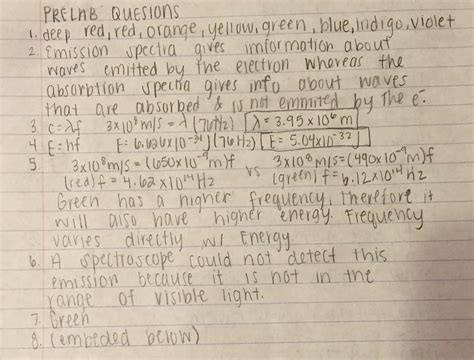 PRELAB QUESIONS
1. deep red, red, orange, yellow, green, blue, indigo, violet
2. Emission spectra gives imformation about
waves emitted by the electron whereas the
absorbtion spectra gives info about waves
that are absorbed & is not emmited by the e⁻.
3. c=λf 3x10⁸m/s = λ (76Hz) λ = 3.95x10⁶m
4. E=hf E=6.626x10⁻³⁴J(76Hz) E = 5.04x10⁻³²J
5. 3x10⁸m/s=(650x10⁻⁹m)f vs 3x10⁸m/s=(490x10⁻⁹m)f
(red) f = 4.62x10¹⁴Hz (green) f=6.12x10¹⁴Hz
Green has a higher frequency, therefore it
will also have higher energy. Frequency
varies directly w/ Energy.
6. A spectroscope could not detect this
emission because it is not in the
range of visible light.
7. Green
8. (embeded below)